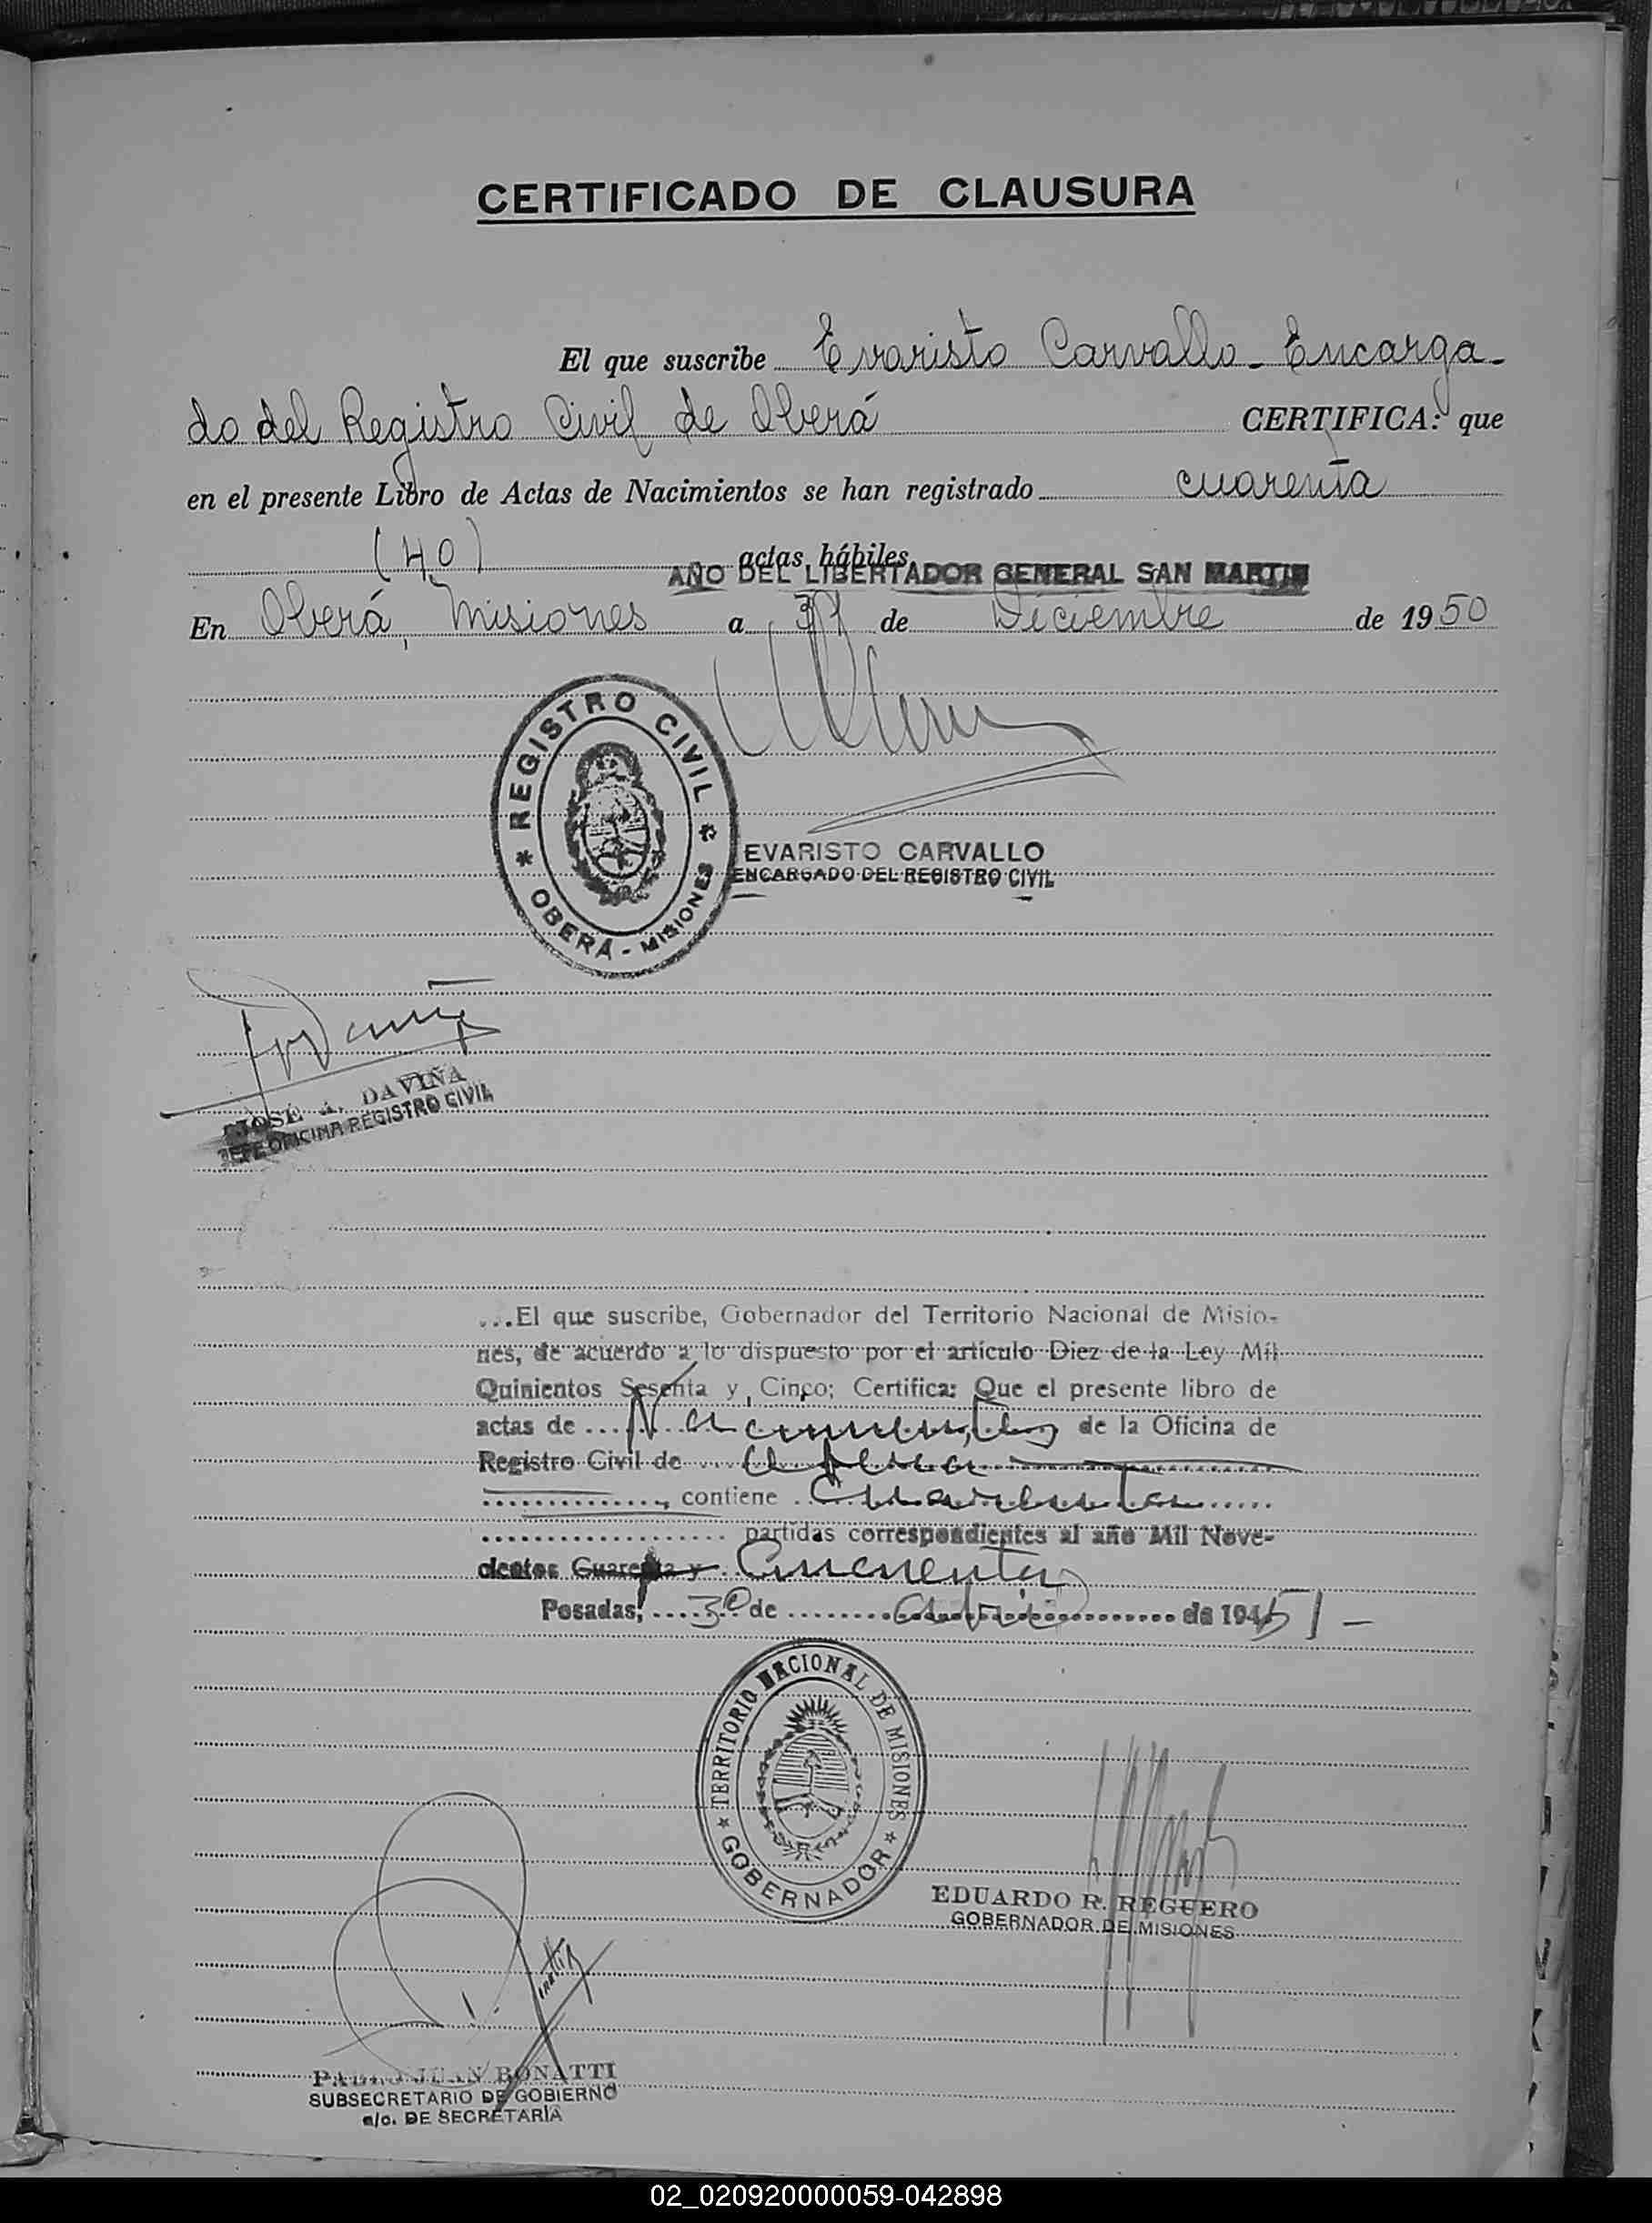 CERTIFICADO DE CLAUSURA
El que suscribe Evaristo Carvallo - Encarga-
do del Registro Civil de Oberá CERTIFICA: que
en el presente Libro de Actas de Nacimientos se han registrado cuarenta
(40) actas hábiles
AÑO DEL LIBERTADOR GENERAL SAN MARTIN
En Oberá, Misiones a 31 de Diciembre de 1950
REGISTRO CIVIL
OBERÁ - MISIONES
EVARISTO CARVALLO
ENCARGADO DEL REGISTRO CIVIL
JOSÉ A. DAVIÑA
JEFE OFICINA REGISTRO CIVIL
...El que suscribe, Gobernador del Territorio Nacional de Misio-
nes, de acuerdo a lo dispuesto por el artículo Diez de la Ley Mil
Quinientos Sesenta y Cinco; Certifica: Que el presente libro de
actas de Nacimientos de la Oficina de
Registro Civil de Oberá
contiene Cuarenta
partidas correspondientes al año Mil Nove-
cientos Cuarenta y Cincuenta
Posadas, 3º de Abril de 1951 -
TERRITORIO NACIONAL DE MISIONES
GOBERNADOR
EDUARDO R. REGUERO
GOBERNADOR DE MISIONES
PABLO JUAN BONATTI
SUBSECRETARIO DE GOBIERNO
a/c. DE SECRETARÍA
02_020920000059-042898